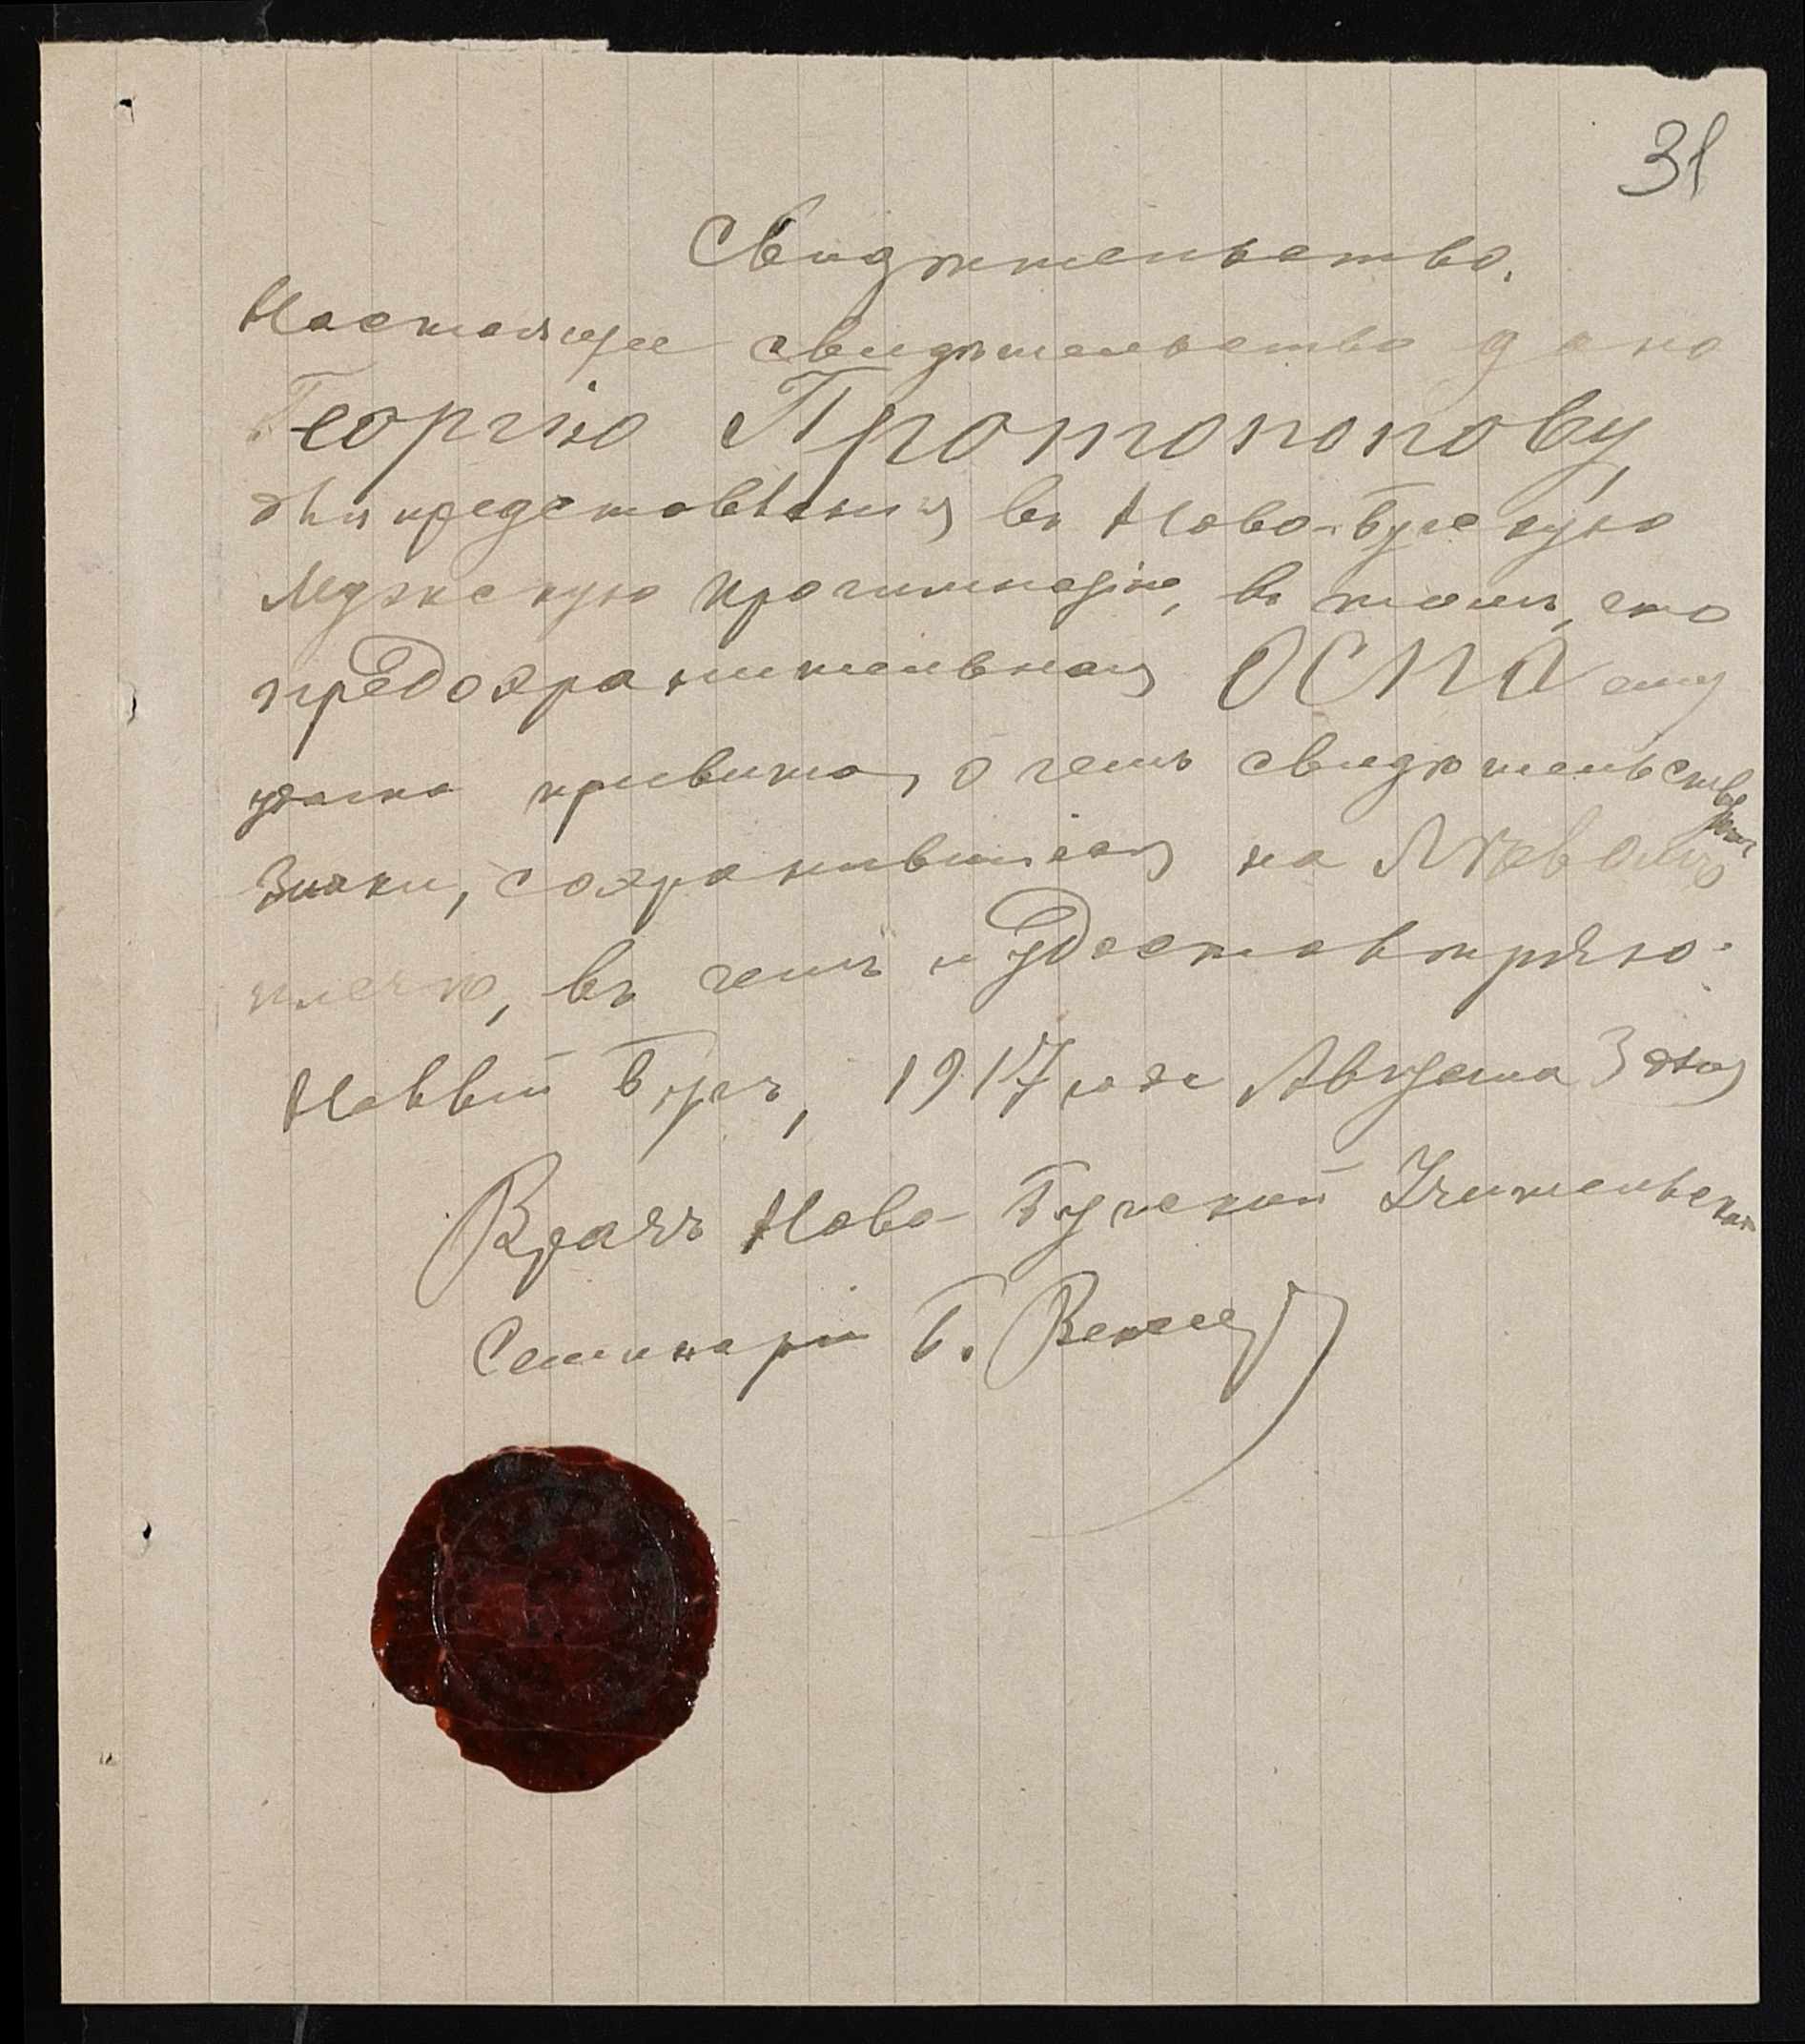 31
Свидѣтельство.
Настоящее свидѣтельство дано
Георгію Протопопову,
для представленія въ Ново-Бугскую
Мужскую прогимназію, въ томъ, что
предохранительная ОСПА ему
удачно привита, о чемъ свидѣтельствуютъ
знаки, сохранившіеся на лѣвомъ
плечѣ, въ чемъ и удостовѣряю.
Новый Бугъ, 1917 года Августа 3 дня
Врачъ Ново-Бугской Учительской
Семинаріи Б.